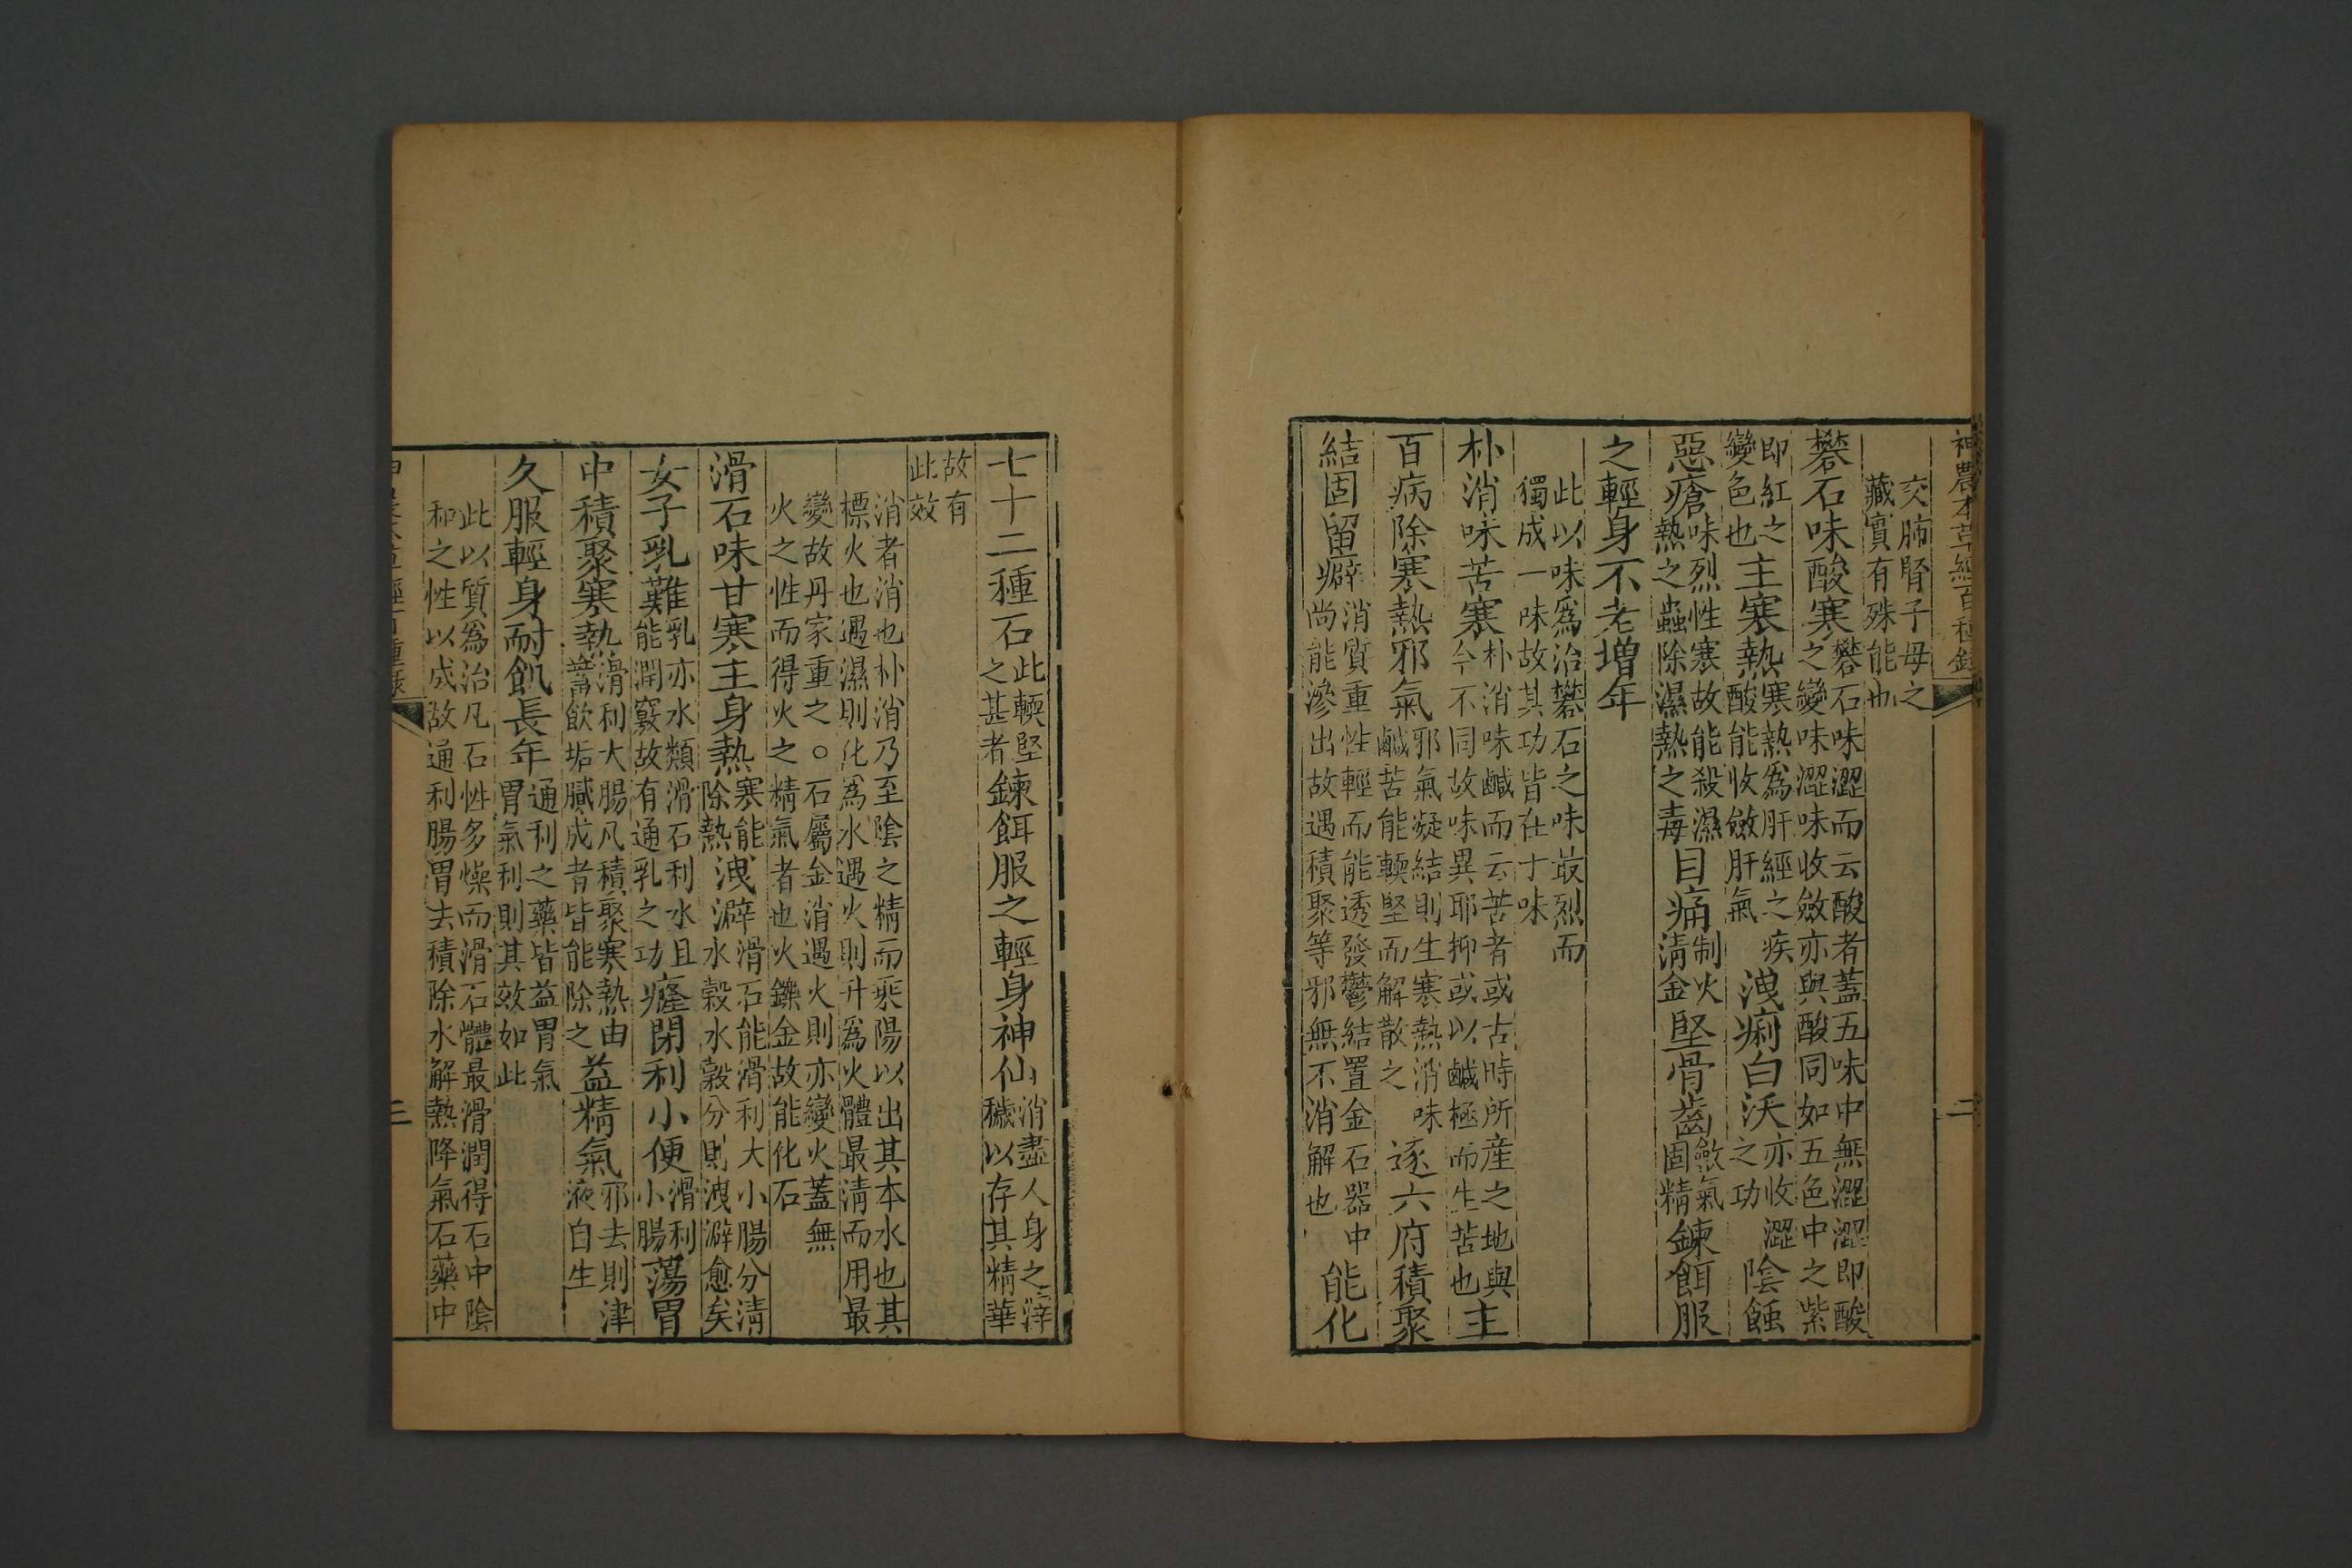 神農本草經百種錄
二
交肺腎子母之
藏實有殊能也
礬石味酸寒礬石味澀而云酸者蓋五味中無澀澀即酸
之變味澀味收斂亦與酸同如五色中之紫
即紅之
變色也主寒熱寒熱爲肝經之疾
酸能收斂肝氣洩痢白沃亦收澀
之功陰蝕
惡瘡味烈性寒故能殺濕
熱之蟲除濕熱之毒目痛制火
淸金堅骨齒斂氣
固精鍊餌服
之輕身不老增年
此以味爲治礬石之味最烈而
獨成一味故其功皆在于味
朴消味苦寒朴消味鹹而云苦者或古時所産之地與
今不同故味異耶抑或以鹹極而生苦也主
百病除寒熱邪氣邪氣凝結則生寒熱消味
鹹苦能輭堅而解散之逐六府積聚
結固留癖消質重性輕而能透發鬱結置金石器中
尚能滲出故遇積聚等邪無不消解也能化
七十二種石此輭堅
之甚者鍊餌服之輕身神仙消盡人身之滓
穢以存其精華
故有
此效
消者消也朴消乃至陰之精而乘陽以出其本水也其
標火也遇濕則化爲水遇火則升爲火體最淸而用最
變故丹家重之○石屬金消遇火則亦變火蓋無
火之性而得火之精氣者也火鑠金故能化石
滑石味甘寒主身熱寒能
除熱洩澼滑石能滑利大小腸分淸
水穀水穀分則洩澼愈矣
女子乳難乳亦水類滑石利水且
能潤竅故有通乳之功癃閉利小便滑利
小腸蕩胃
中積聚寒熱滑利大腸凡積聚寒熱由
蓄飮垢膩成者皆能除之益精氣邪去則津
液自生
久服輕身耐飢長年通利之藥皆益胃氣
胃氣利則其效如此
此以質爲治凡石性多燥而滑石體最滑潤得石中陰
和之性以成故通利腸胃去積除水解熱降氣石藥中
三